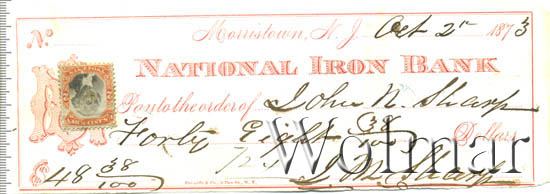 No. Morristown, N. J. Oct 2nd 1873
NATIONAL IRON BANK
Pay to the order of John N. Sharp
Forty Eight 38/100 Dollars
$48 38/100
Wolmar